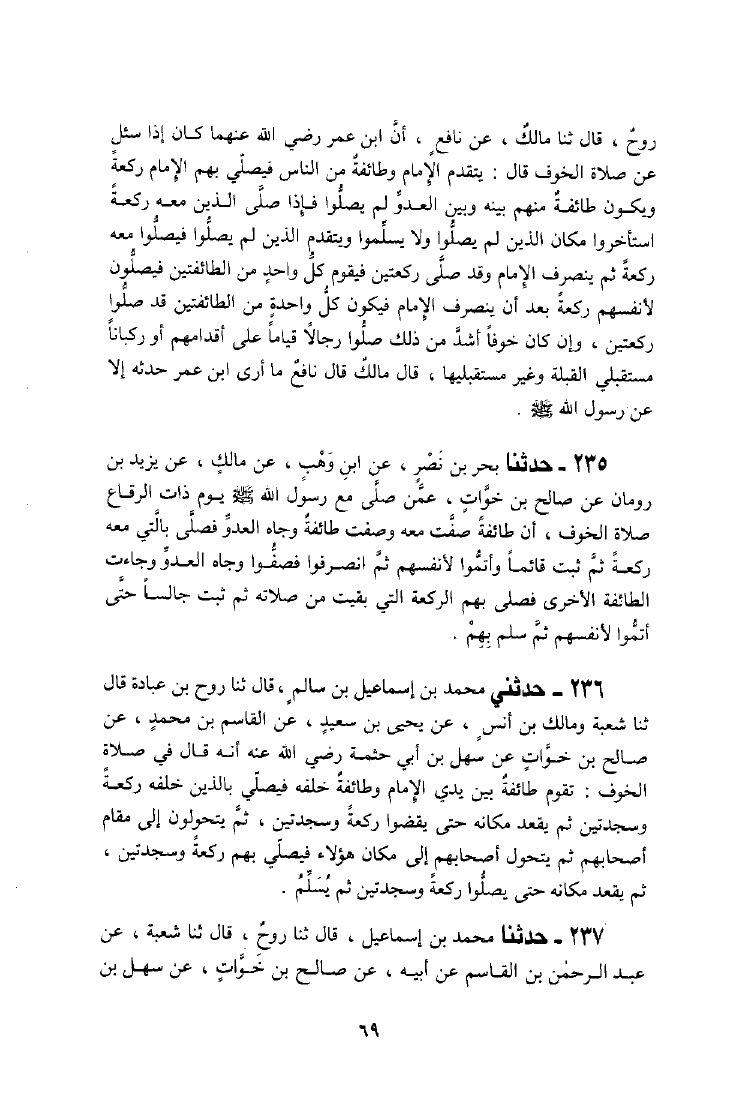 روحٌ ، قال ثنا مالكٌ ، عن نافعٍ ، أنَّ ابن عمر رضي الله عنهما كـان إذا سئل
عن صلاة الخوف قال : يتقدم الإمام وطائفةٌ من الناس فيصلّي بهم الإمام ركعةً
ويكـون طائفـةٌ منهم بينه وبين العـدوِّ لم يصلُّوا فـإذا صلَّى الـذين معـه ركعـةً
استأخروا مكان الذين لم يصلُّوا ولا يسلِّموا ويتقدم الذين لم يصلُّوا فيصلُّوا معه
ركعةً ثم ينصرف الإمام وقد صلَّى ركعتين فيقوم كلُّ واحدٍ من الطائفتين فيصلُّون
لأنفسهم ركعةً بعد أن ينصرف الإمام فيكون كلُّ واحدةٍ من الطائفتين قد صلُّوا
ركعتين ، وإن كان خوفاً أشدَّ من ذلك صلُّوا رجالاً قياماً على أقدامهم أو ركباناً
مستقبلي القبلة وغير مستقبليها ، قال مالكٌ قال نافعٌ ما أرى ابن عمر حدثه إلا
عن رسول الله ﷺ .
٢٣٥ ـ حدثنا بحر بن نَصْرٍ ، عن ابنِ وَهْبٍ ، عن مالكٍ ، عن يزيد بن
رومان عن صالح بن خوَّاتٍ ، عمَّن صلَّى مع رسول الله ﷺ يـوم ذات الرقـاع
صلاة الخـوف ، أن طائفةً صفَّت معه وصفت طائفةٌ وجاه العدوِّ فصلَّى بالَّتي معه
ركعـةً ثمَّ ثبت قائمـاً وأتمُّوا لأنفسهم ثمَّ انصـرفوا فصفُّـوا وجاه العـدوِّ وجاءت
الطائفة الأخرى فصلى بهم الركعة التي بقيت من صلاته ثم ثبت جالسـاً حتَّى
أتمُّوا لأنفسهم ثمَّ سلم بِهِمْ .
٢٣٦ ـ حدثني محمد بن إسماعيل بن سالمٍ ، قال ثنا روح بن عبادة قال
ثنا شعبة ومالك بن أنسٍ ، عن يحيى بن سعيدٍ ، عن القاسم بن محمدٍ ، عن
صالح بن خـوَّاتٍ عن سهل بن أبي حثمـة رضي الله عنه أنـه قـال في صـلاة
الخوف : تقوم طائفةٌ بين يدي الإمام وطائفةٌ خلفه فيصلّي بالذين خلفه ركعـةً
وسجدتين ثم يقعد مكانه حتى يقضوا ركعةً وسجدتين ، ثمَّ يتحولون إلى مقام
أصحابهم ثم يتحول أصحابهم إلى مكان هؤلاء فيصلّي بهم ركعةً وسجدتين ،
ثم يقعد مكانه حتى يصلُّوا ركعةً وسجدتين ثم يُسَلِّمُ .
٢٣٧ ـ حدثنا محمد بن إسماعيل ، قال ثنا روحٌ ، قال ثنا شعبة ، عن
عبـد الـرحمٰن بن القـاسم عن أبيـه ، عن صـالـح بن خَـوَّاتٍ ، عن سهـل بن
٦٩